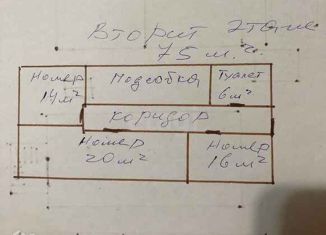 Вторит этаже
75 м. и.
Номер
14 м²
Подсобка
Туалет
6 м²
Коридор
Номер
20 м²
Номер
16 м²